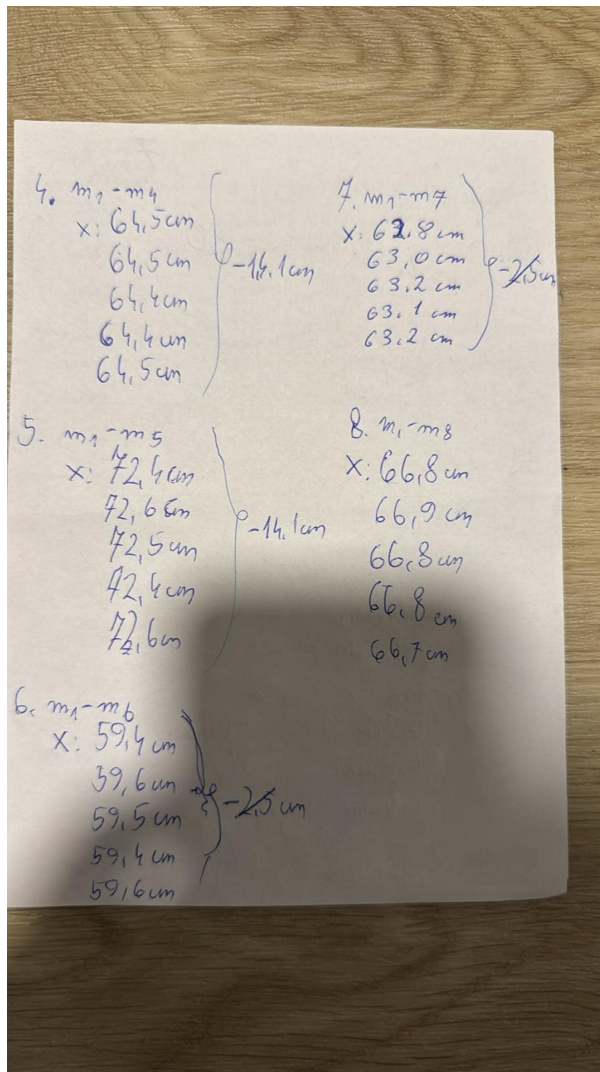 4. m₁-m₄
x: 64,5cm
64,5cm
64,4cm
64,4cm
64,5cm
-14,1cm
5. m₁-m₅
x: 72,4cm
72,6cm
72,5cm
72,4cm
72,6cm
-14,1cm
6. m₁-m₆
x: 59,4cm
59,6cm
59,5cm
59,4cm
59,6cm
-2,5cm
7. m₁-m₇
x: 8cm
63,0cm
63,2cm
63,1cm
63,2cm
-2,5cm
8. m₁-m₈
x: 66,8cm
66,9cm
66,8cm
66,8cm
66,7cm